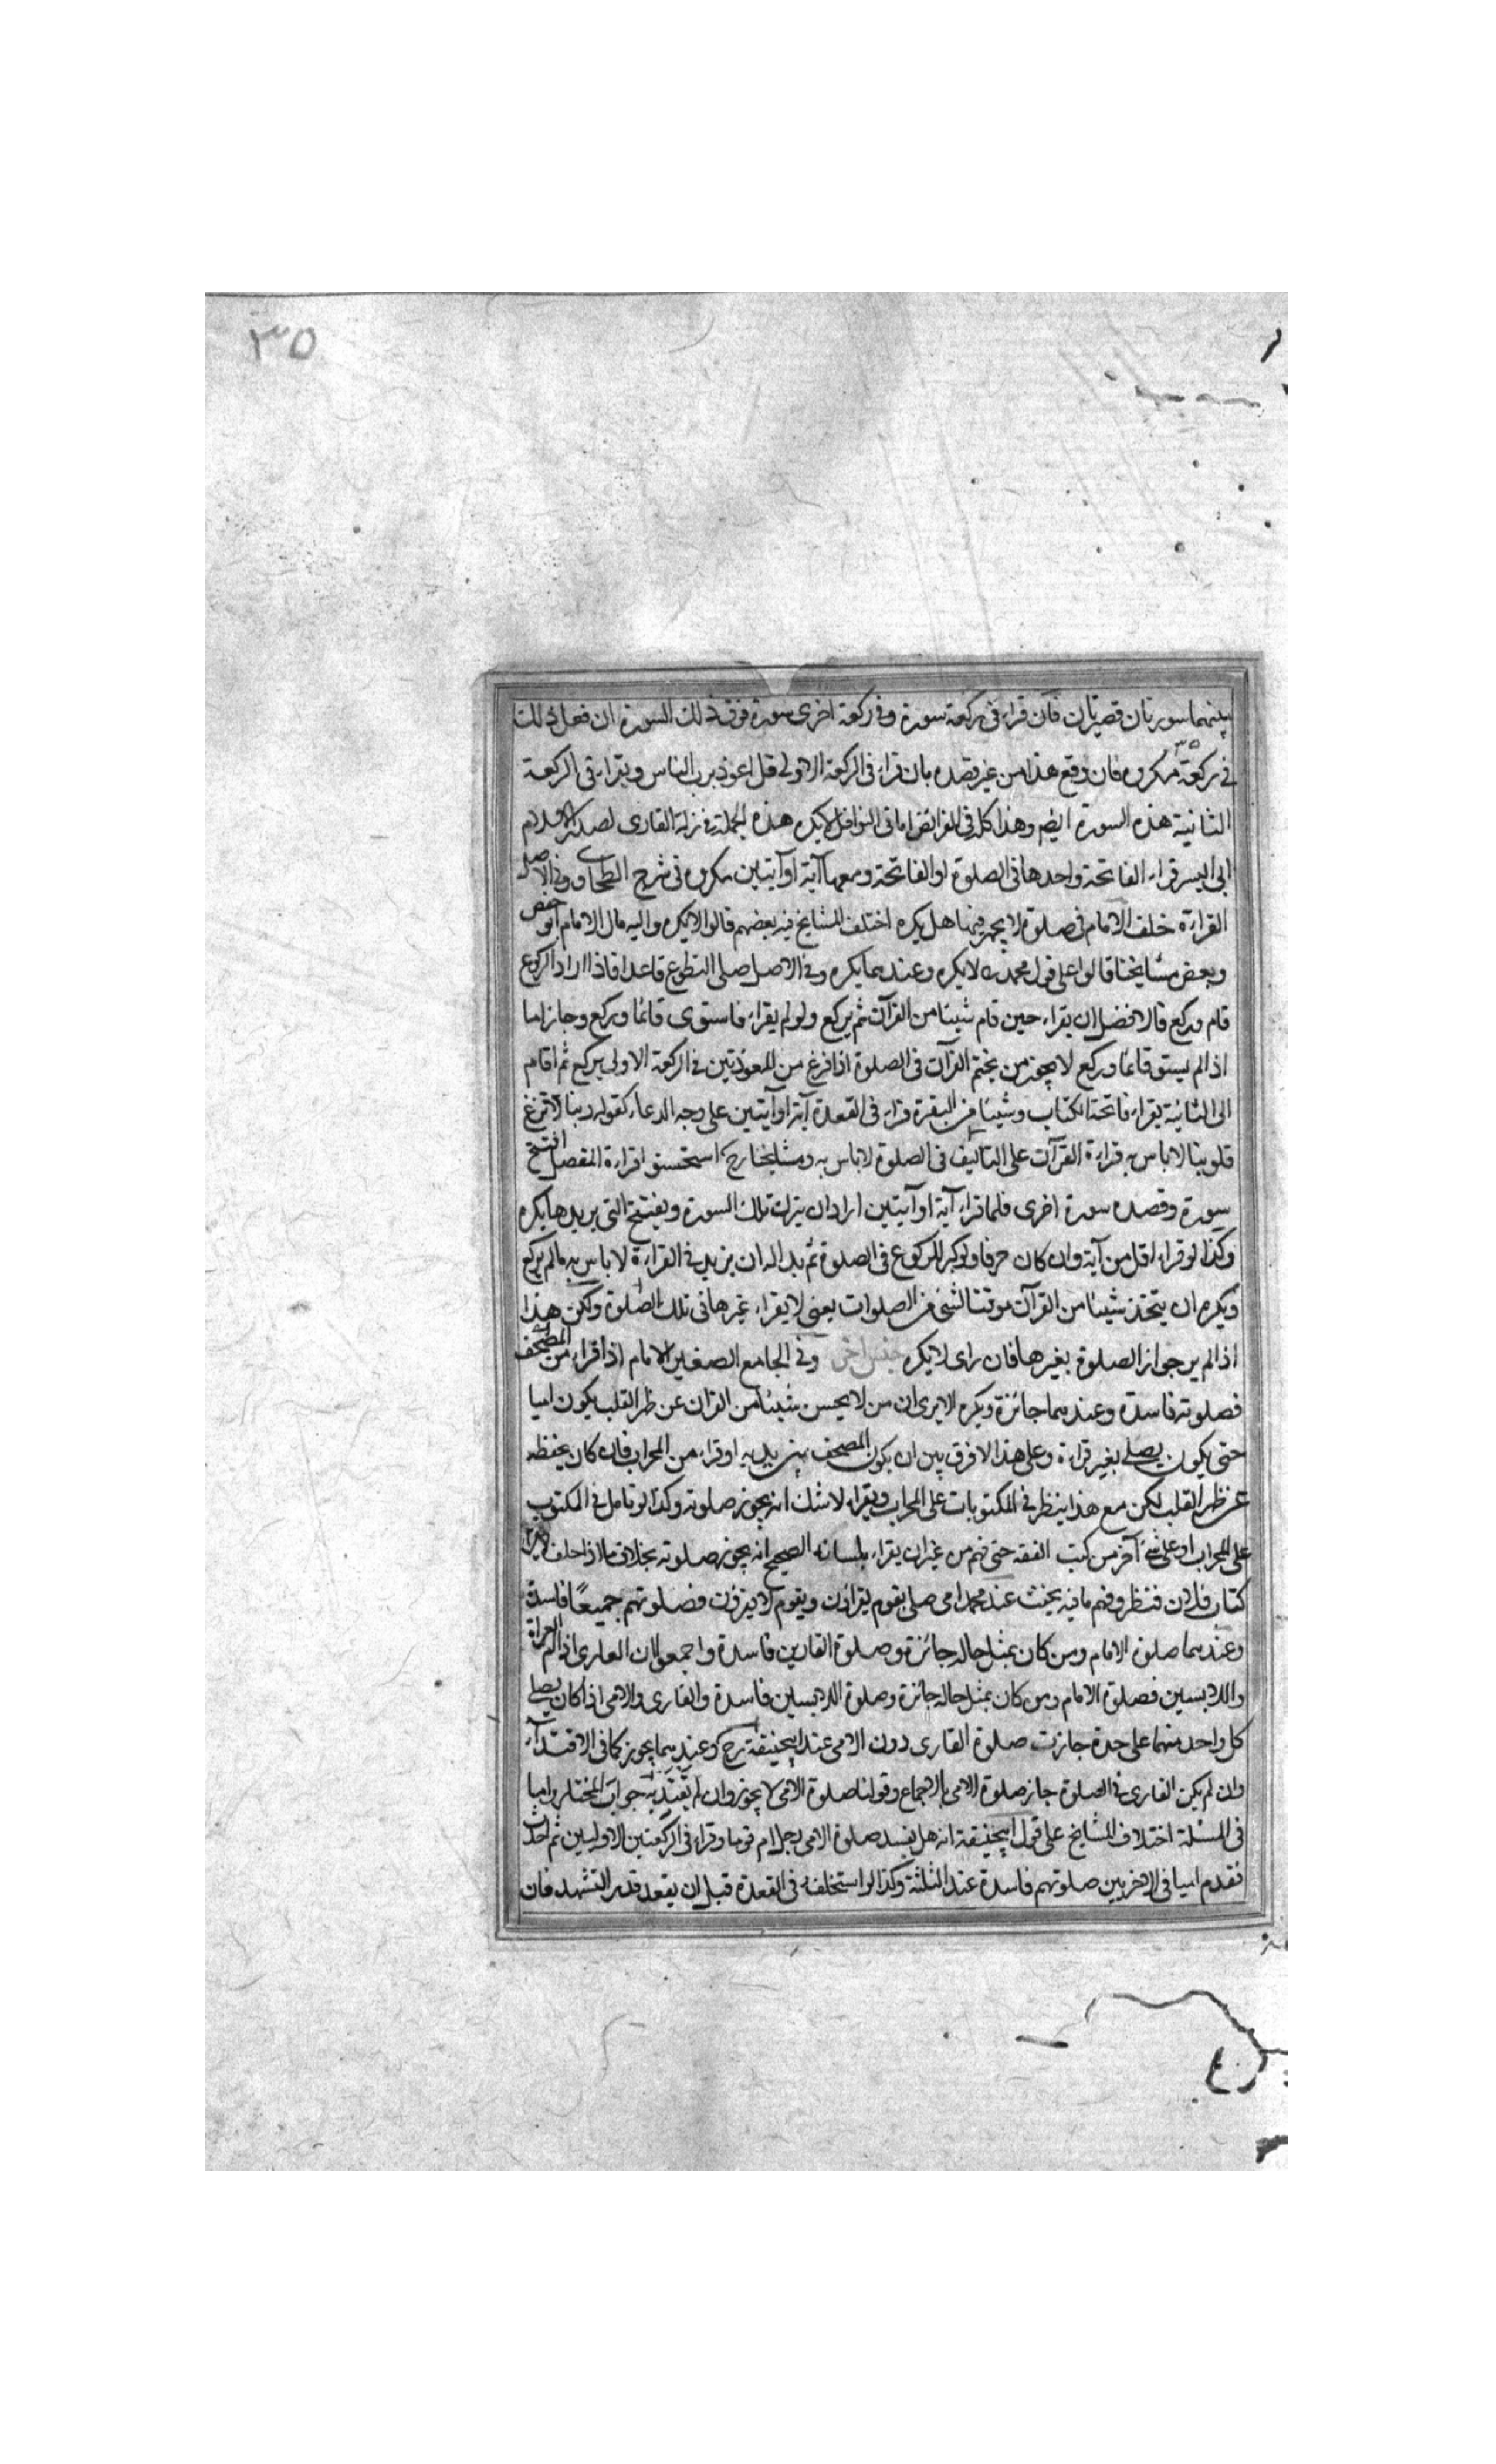 ٣٥
بينهما سورتان قصيرتان فان قراء في ركعة سورة وفي ركعة اخرى سورة فوق ذلك السورة ان فعل ذلك
في ركعة مكروه فان وقع هذا من غير قصده بان قراء في الركعة الاولى قل اعوذ برب الناس ويقراء في الركعة
الثانية هذه السورة ايضم وهذا كله في الفرائض اما في النوافل لا يكره هذه الجملة في زلة القارى لصدر الاسلام
ابي اليسر قراء الفاتحة واحدها في الصلوة او الفاتحة ومعها آية او آيتين مكروه في شرح الطحاوى وفي الاصل
القراءة خلف الامام في صلوة لا يجهر فيها هل يكره اختلف المشايخ فيه بعضهم قالوا لا يكره واليه مال الامام ابو حفص
وبعض مشايخنا قالوا على قول محمد ره لا يكره وعندهما يكره وفي الاصل صلى التطوع قاعدا فاذا اراد الركوع
قام وركع فالافضل ان يقراء حين قام شيئا من القرآن ثم يركع ولو لم يقراء فاستوى قائما وركع وجاز اما
اذا لم يستو قائما وركع لا يجوز من يختم القرآن في الصلوة اذا فرغ من المعوذتين في الركعة الاولى يركع ثم اقام
الى الثانية يقراء فاتحة الكتاب وشيئا من البقرة قراء في القعدة آية او آيتين على وجه الدعاء كقوله ربنا لا تزغ
قلوبنا لا باس به قراءة القرآن على التاليف في الصلوة لا باس به ومشايخنا رح استحسنوا قراءة المفصل افتتح
سورة وقصده سورة اخرى فلما قراء آية او آيتين اراد ان يترك تلك السورة ويفتتح التي يريدها يكره
وكذا لو قراء اقل من آية وان كان حرفا ولو كبر للركوع في الصلوة ثم بدا له ان يزيد في القراءة لا باس به ما لم يركع
ويكره ان يتخذ شيئا من القرآن موقتا لشئ من الصلوات يعني لا يقراء غيرها في تلك الصلوة ولكن هذا
اذا لم ير جواز الصلوة بغيرها فان راى لا يكره جنس اخر وفي الجامع الصغير الامام اذا قراء من المصحف
فصلوته فاسدة وعندهما جائزة ويكره الا يرى ان من لا يحسن شيئا من القران عن ظهر القلب يكون اميا
حتى يكون يصلي بغير قراءة وعلى هذا لا فرق بين ان يكون المصحف بين يديه او قراء من المحراب فان كان يحفظه
عن ظهر القلب لكن مع هذا ينظر في المكتوبات على المحراب ويقراء لا شك انه يجوز صلوته وكذا لو تامل في المكتوب
على المحراب او على شئ آخر من كتب الفقه حتى فهم من غير ان يقراء بلسانه الصحيح انه يجوز صلوته بخلاف ما اذا حلف لا يقراء
كتاب فلان فنظر وفهم ما فيه يحنث عند محمد امي صلى بقوم يقراؤن وبقوم لا يقرؤن فصلوتهم جميعًا فاسدة
وعندهما صلوة الامام ومن كان بمثل حاله جائزة وصلوة القارين فاسدة واجمعوا ان العاري اذا ام العراة
واللابسين فصلوة الامام ومن كان بمثل حاله جائزة وصلوة اللابسين فاسدة والقارى والامى اذا كان يصلي
كل واحد منهما على حدة جازت صلوة القارى دون الامى عند ابيحنيفة رح وعندهما يجوز كما في الاقتداء
وان لم يكن القارى في الصلوة جاز صلوة الامى بالاجماع وقولنا صلوة الامى لا يجوز وان لم يقتد به جواب المختار واما
في المسئلة اختلاف المشايخ على قول ابيحنيفة انه هل يفسد صلوة الامى رجل ام قوما وقراء في الركعتين الاوليين ثم احدث
فقدم اميا في الاخريين صلوتهم فاسدة عند الثلثة وكذا لو استخلفه في القعدة قبل ان يقعد قدر التشهد فان